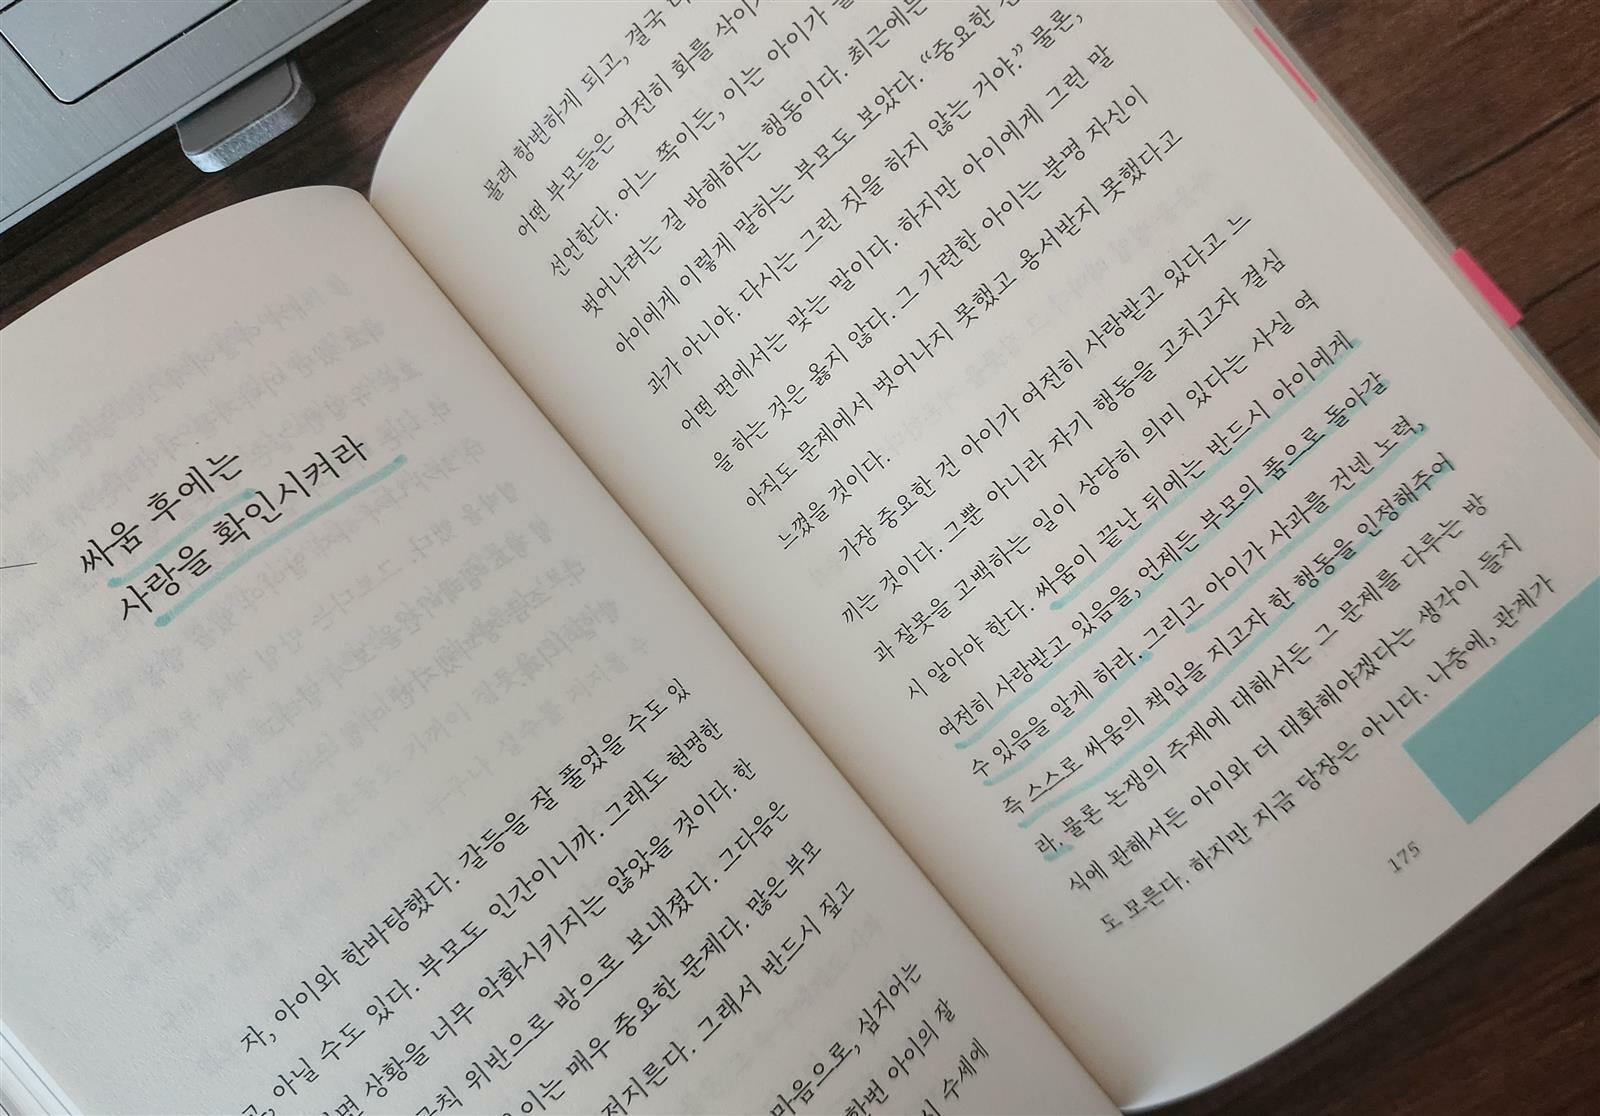 싸움 후에는
사랑을 확인시켜라
자, 아이와 한바탕했다. 갈등을 잘 풀었을 수도 있
고, 아닐 수도 있다. 부모도 인간이니까. 그래도 현명한
상황을 너무 악화시키지는 않았을 것이다. 한
규칙 위반으로 방으로 보내졌다. 그다음은
이는 매우 중요한 문제다. 많은 부모
저지른다. 그래서 반드시 짚고
마음으로, 심지어는
한번 아이의 잘
수세에
몰래 항변하게 되고, 결국
어떤 부모들은 여전히 화를 삭이지
선언한다. 어느 쪽이든, 이는 아이가
벗어나려는 걸 방해하는 행동이다. 최근에는
아이에게 이렇게 말하는 부모도 보았다. “중요한 건
과가 아니야. 다시는 그런 짓을 하지 않는 거야.” 물론,
어떤 면에서는 맞는 말이다. 하지만 아이에게 그런 말
을 하는 것은 옳지 않다. 그 가련한 아이는 분명 자신이
아직도 문제에서 벗어나지 못했고 용서받지 못했다고
느꼈을 것이다.
가장 중요한 건 아이가 여전히 사랑받고 있다고 느
끼는 것이다. 그뿐 아니라 자기 행동을 고치고자 결심
과 잘못을 고백하는 일이 상당히 의미 있다는 사실 역
시 알아야 한다. 싸움이 끝난 뒤에는 반드시 아이에게
여전히 사랑받고 있음을, 언제든 부모의 품으로 돌아갈
수 있음을 알게 하라. 그리고 아이가 사과를 건넨 노력,
즉 스스로 싸움의 책임을 지고자 한 행동을 인정해주어
라. 물론 논쟁의 주제에 대해서든 그 문제를 다루는 방
식에 관해서든 아이와 더 대화해야겠다는 생각이 들지
도 모른다. 하지만 지금 당장은 아니다. 나중에, 관계가
175